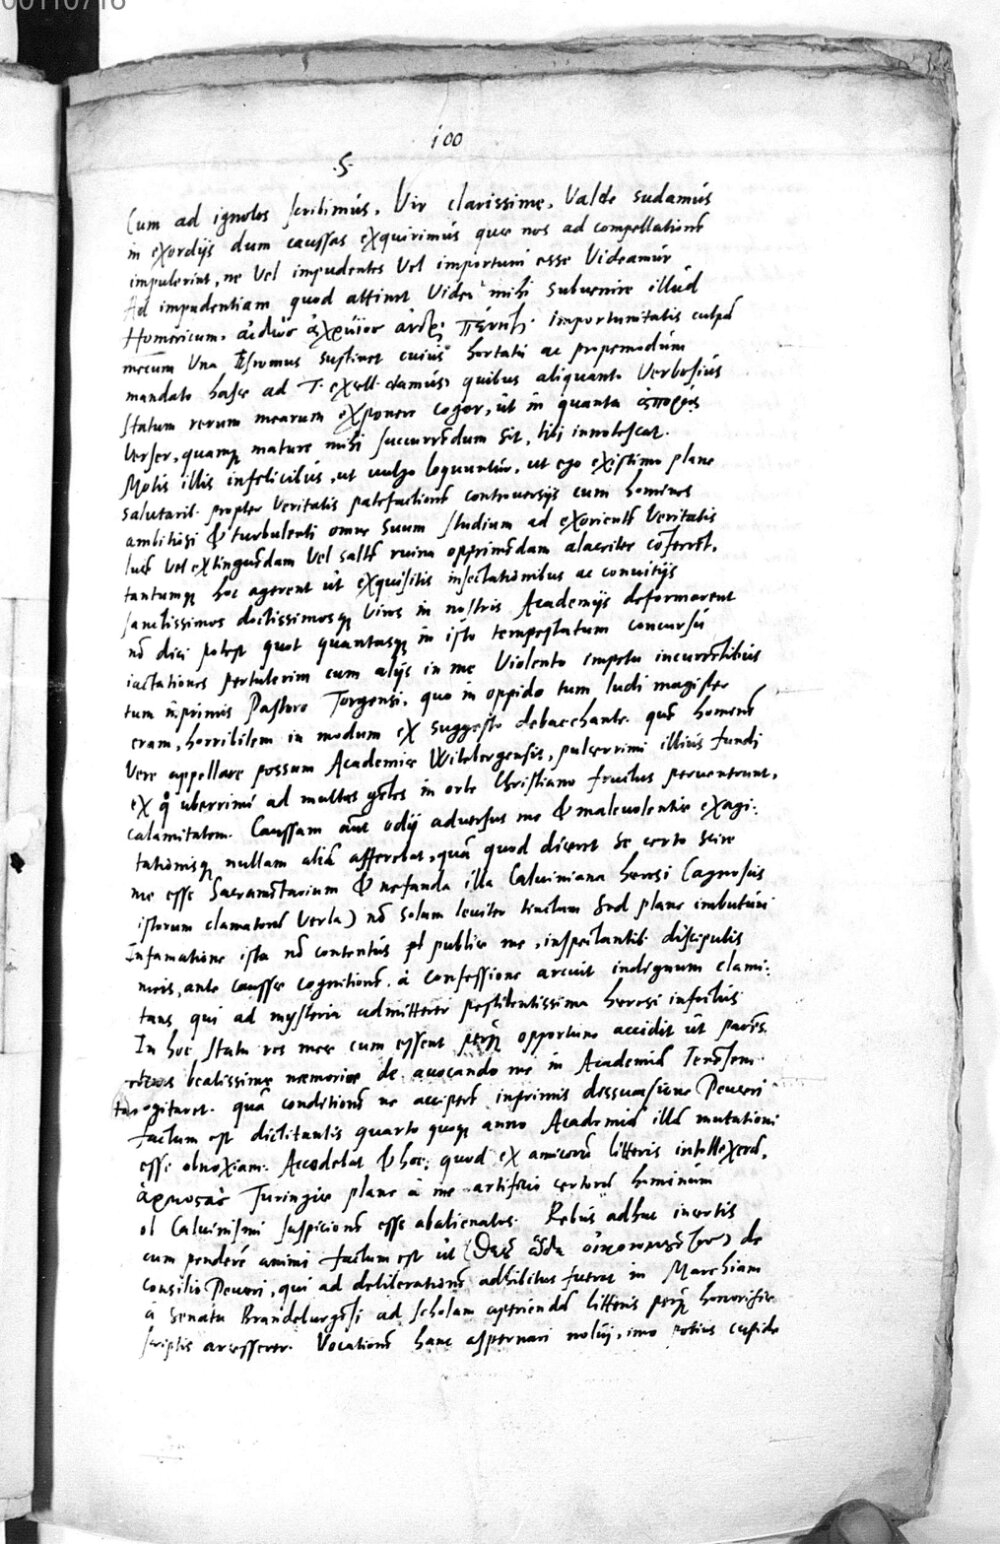 00110718
100
.S.
Cum ad ignotos scribimus, Vir clarissime, Valde sudamus
in exordijs dum caussas exquirimus quae nos ad compellationē
impulerint, ne vel impudentes vel importuni esse Videamur
Ad impudentiam quod attinet Videt mihi subuenire illud
Homericum. importunitatis culpā
mecum Una sustinet cuius hortatu ac propemodum
mandato hasce ad T. excell. damus, quibus aliquanto Verbosius
statum rerum mearum exponere cogor, ut in quanta
verser, quamq mature mihi succurrēdum sit, tibi innotescat.
Motis illis infelicibus, ut vulgo loquuntur, ut ego existimo plane
salutarib. propter veritatis patefactionē controversijs cum homines
ambitiosi & turbulenti omne suum studium ad exorientē Veritatis
lucē vel extinguēdam vel saltē ruina opprimēdam alacriter cōferrēt,
tantumq hoc agerent ut exquisitis insectationibus ac conuitijs
sanctissimos doctissimosq viros in nostris Academijs deformarent
nō dici potest quot quantasq in isto tempestatum concursu
iactationes pertulerim cum alijs in me Violento impetu incurrētibus
tum inprimis Pastore Torgensi, quo in oppido tum ludi magister
eram, horribilem in modum ex suggesto debacchante. quē hominē
Vere appellare possum Academiae Witebergensis, pulcerrimi illius fundi
ex quo uberrimi ad multas gētes in orbe Christiano fructus peruenerunt,
calamitatem. Caussam aūt odij aduersus me & maleuolentiae exagi:
tationisq nullam aliā afferebat, quā quod diceret se certo scire
me esse Sacramētarium & nefanda illa Caluiniana heresi (agnoscis
istorum clamatorū verba) nō solum leuiter tinctum sed plane imbutum
Infamatione ista nō contentus publice me, inspectantib. discipulis
meis, ante caussae cognitionē, à confessione arcuit indignum clami:
tans, qui ad mysteria admitteret pestilentissima heresi infectus
In hoc statu res meae cum essent opportune accidit ut
beatissimae memoriae de auocando me in Academiā Ienēsem
cogitaret. quā conditionē ne acciperē inprimis dissuasione Peuceri
factum est dictitantis quarto quoq anno Academiā illā mutationi
esse obnoxiam. Accedebat & hoc, quod ex amicorū litteris intellexerā,
Turingiae plane à me artificio certorū hominum
ob Caluinismi suspicionē esse abalienatos. Rebus adhuc incertis
cum penderē animi factum est ut de
consilio Peuceri, qui ad deliberationē adhibitus fuerat in Marchiam
à Senatu Brandeburgēsi ad scholam aperiendā litteris honorifice
scriptis arcesserer. Vocationē hanc aspernari nolui, imo potius cupide